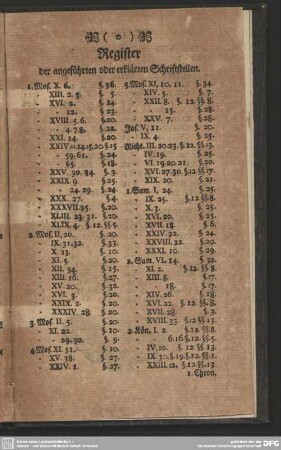 ( o )
Register
der angeführten oder erklärten Schriftstellen.
1. Mos. X. 6. §. 36.
- XIII. 2. 5. §. 5.
- XVI. 2. §. 14.
- 12. §. 23.
- XVIII. 5. 6. §. 20.
- 4. 7. 8. §. 28.
- XXI. 14. §. 20.
- XXIV. 11. 14. 15. 20 § 15
- 59. 61. §. 24.
- 65. §. 18.
- XXV. 30. 84. §. 3.
- XXIX. 9. §. 25.
- 24. 29. §. 24.
- XXX. 27. §. 4.
- XXXVII. 25. §. 20.
- XLIII. 23. 31. §. 20.
- XLIX. 4. §. 12. §§.
2. Mos. II, 20. §. 20.
- IX. 31. 32. §. 33.
- X. 13. §. 10.
- XI. 5. §. 20.
- XII. 34. §. 15.
- XIII. 16. §. 27.
- XV. 20. §. 32.
- XVI. 3. §. 20.
- XXIX. 2. §. 20.
- XXXIV. 28. §. 20.
3. Mos. II. 5. §. 20.
- XI. 22. §. 10.
- 29. 30. §. 9.
4. Mos. XI. 31. §. 10.
- XV. 38. §. 27.
- XXIV. 1. §. 27.
5. Mos. XI, 10. 11. §. 34.
- XIV. 5. §. 7.
- XXII. 8. §. 12. §§. 8.
- 15. §. 28.
- XXV. 7. §. 28.
Jos. V, 11. §. 20.
- IX. 4. §. 25.
Richt. III. 20. 23. §. 12. §§. 13.
- IV. 19. §. 25.
- VI. 19. 20. 21. §. 20.
- XVI. 27. 30. §. 12 §§. 17.
- XIX. 20. §. 21.
1. Sam. I, 24. §. 25.
- IX. 25. §. 12 §§. 8.
- X. 3. §. 25.
- XVI. 20. §. 25.
- XVII. 18. §. 6.
- XXIV. 22. §. 24.
- XXVIII. 22. §. 20.
- XXXI. 10. §. 29.
2. Sam. VI. 14. §. 32.
- XI. 2. §. 12. §§. 8.
- XIII. 8. §. 17.
- 18. §. 17.
- XIV. 26. §. 18.
- XVI. 22. §. 12. §§. 8.
- XVII. 28. §. 3.
- XVIII. 33. §. 12 §§. 13.
2. Kön. I. 2. §. 12. §§. 8.
- 6. 16. §. 12. §§. 5.
- IV. 10. §. 12 §§. 13.
- IX 30. §. 19. §. 12. §§. 1.
- XXIII. 12. §. 12 §§. 13.
1. Chron.